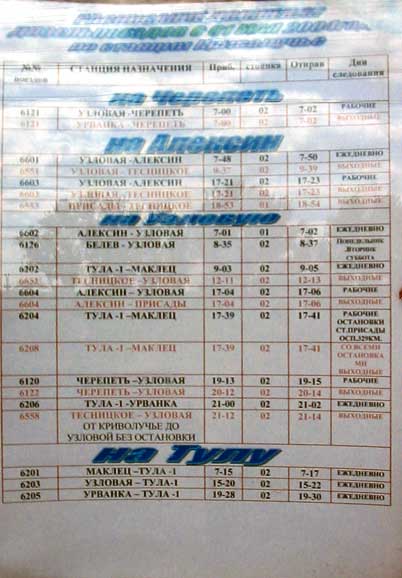 Расписание движения
дизель-поездов с 01 мая
по станции Криволучье
№№ поездов СТАНЦИЯ НАЗНАЧЕНИЯ Приб. стоянка Отправ Дни следования
на Черепеть
6121 УЗЛОВАЯ-ЧЕРЕПЕТЬ 7-00 02 7-02 РАБОЧИЕ
6121 УРВАНКА-ЧЕРЕПЕТЬ 7-00 02 7-02 ВЫХОДНЫЕ
на Алексин
6601 УЗЛОВАЯ-АЛЕКСИН 7-48 02 7-50 ЕЖЕДНЕВНО
6551 УЗЛОВАЯ-ТЕСНИЦКОЕ 9-37 02 9-39 ВЫХОДНЫЕ
6603 УЗЛОВАЯ-АЛЕКСИН 17-21 02 17-23 РАБОЧИЕ
УЗЛОВАЯ-ТЕСНИЦКОЕ 17-21 02 17-23 ВЫХОДНЫЕ
ПРИСАДЫ-ТЕСНИЦКОЕ 18-53 01 18-54 ВЫХОДНЫЕ
на Узловую
6602 АЛЕКСИН - УЗЛОВАЯ 7-01 01 7-02 ЕЖЕДНЕВНО
6126 БЕЛЕВ - УЗЛОВАЯ 8-35 02 8-37 ПОНЕДЕЛЬНИК
,ВТОРНИК
СУББОТА
6202 ТУЛА -1 –МАКЛЕЦ 9-03 02 9-05 ЕЖЕДНЕВНО
6552 ТЕСНИЦКОЕ –УЗЛОВАЯ 12-11 02 12-13 ВЫХОДНЫЕ
6604 АЛЕКСИН – УЗЛОВАЯ 17-04 02 17-06 РАБОЧИЕ
6604 АЛЕКСИН –ПРИСАДЫ 17-04 02 17-06 ВЫХОДНЫЕ
6204 ТУЛА -1 –МАКЛЕЦ 17-39 02 17-41 РАБОЧИЕ
ОСТАНОВКИ
СТ.ПРИСАДЫ
ОСП.329КМ.
6208 ТУЛА -1 –МАКЛЕЦ 17-39 02 17-41 СО ВСЕМИ
ОСТАНОВКА
МИ
ВЫХОДНЫЕ
6120 ЧЕРЕПЕТЬ –УЗЛОВАЯ 19-13 02 19-15 РАБОЧИЕ
6122 ЧЕРЕПЕТЬ –УЗЛОВАЯ 20-12 02 20-14 ВЫХОДНЫЕ
6206 ТУЛА -1 -УРВАНКА 21-00 02 21-02 ЕЖЕДНЕВНО
6558 ТЕСНИЦКОЕ – УЗЛОВАЯ 21-12 02 21-14 ВЫХОДНЫЕ
ОТ КРИВОЛУЧЬЕ ДО
УЗЛОВОЙ БЕЗ ОСТАНОВКИ
на Тулу
6201 МАКЛЕЦ –ТУЛА -1 7-15 02 7-17 ЕЖЕДНЕВНО
6203 УЗЛОВАЯ – ТУЛА-1 15-20 02 15-22 ЕЖЕДНЕВНО
6205 УРВАНКА –ТУЛА -1 19-28 02 19-30 ЕЖЕДНЕВНО